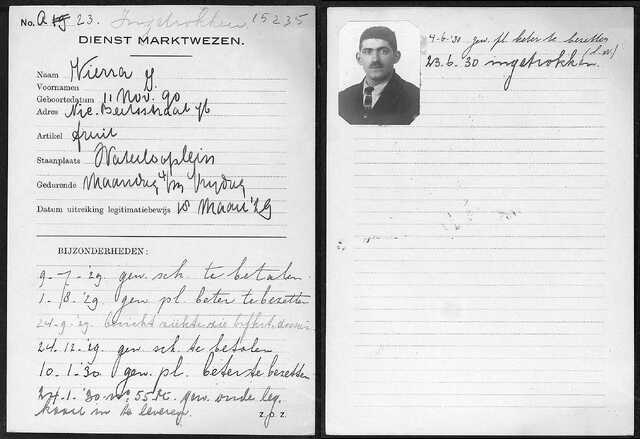 No. A 23. Ingetrokken 15235
DIENST MARKTWEZEN.
Naam Vierra J.
Voornamen
Geboortedatum 11 Nov. 90
Adres Nic. Beetsstraat 76
Artikel fruit
Staanplaats Waterlooplein
Gedurende Maandag t/m Vrijdag
Datum uitreiking legitimatiebewijs 18 Maart '29
BIJZONDERHEDEN:
9-7-'29 gew. sch. te betalen.
1-8-'29 gew. pl. beter te bezetten
24-9-'29 bericht ziekte zie
24-12-'29 gew. sch. te betalen
10-1-'30 gew. pl. beter te bezetten
24-1-'30 no. 55 gew. oude leg.
kaart in te leveren.
z.o.z.
4-6-'30 gew. pl. beter te bezetten
23.6.'30 ingetrokken.